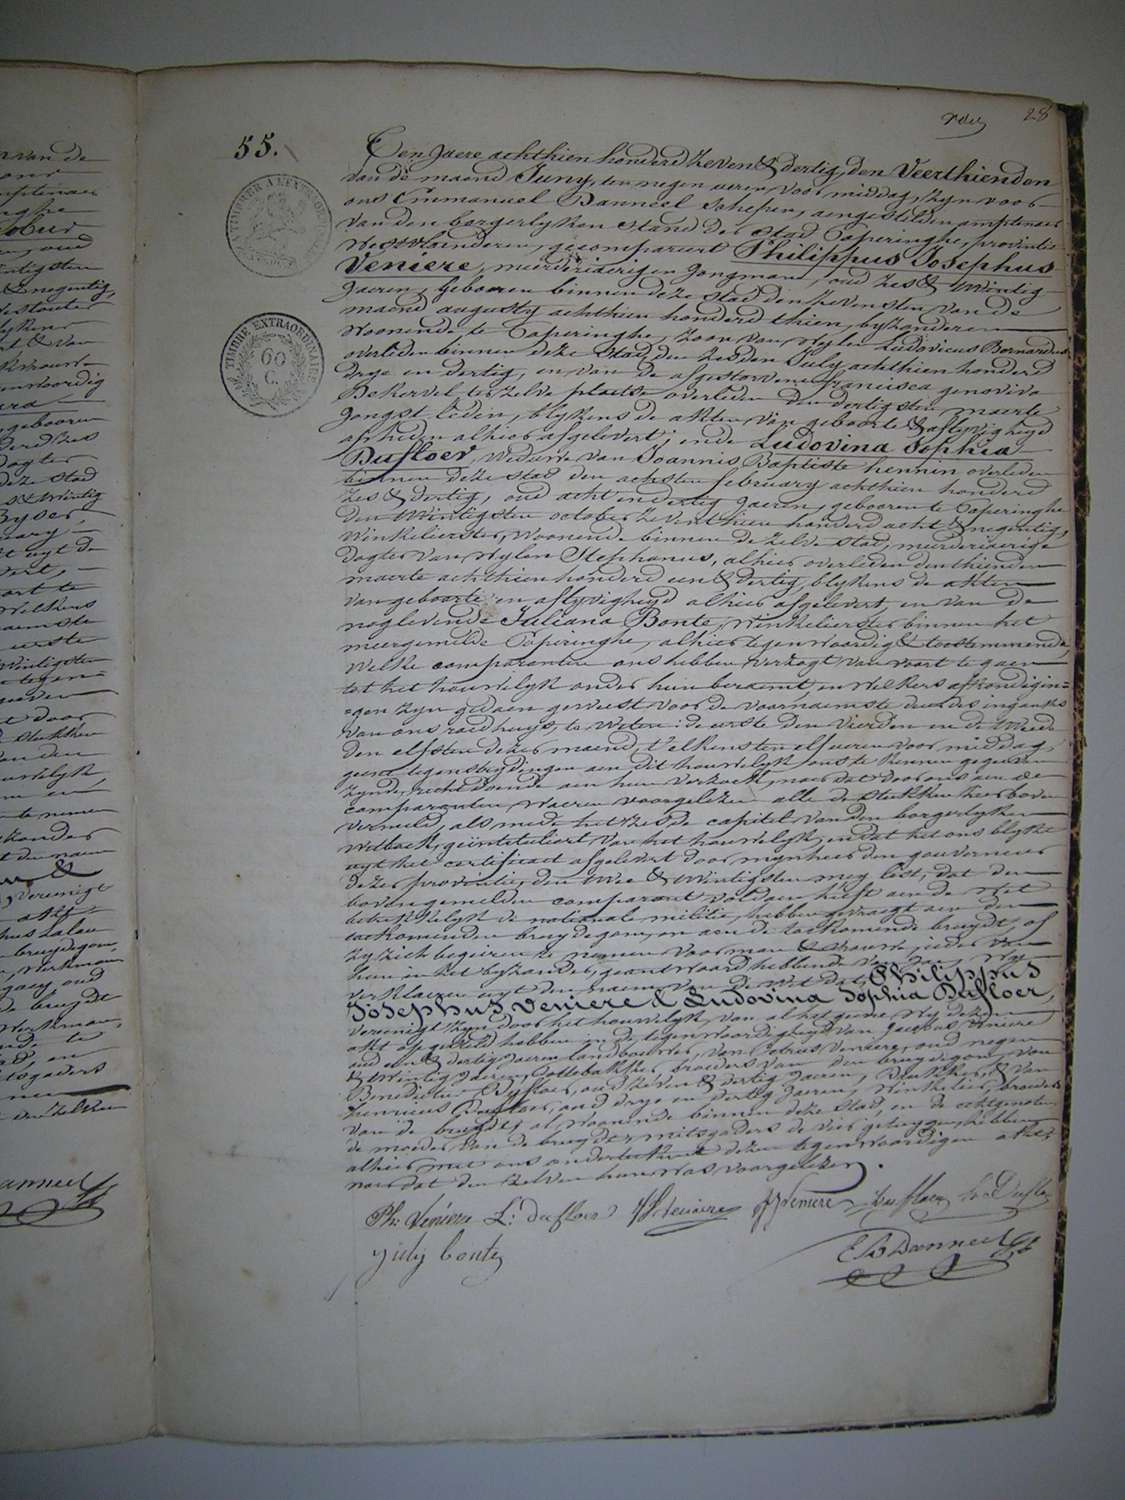 28
55.
Een Jaere achthien honderd zeven & dertig, den Veerthienden
van de maend Juny, ten negen uren voor middag, zyn voor
ons Emmanuel Danneel Schepen, aengestelden amptenaer
van den borgerlyken Stand der Stad Poperinghe, provintie
Westvlaenderen, gecompareert Philippus Josephus
Veniere, meerderjaerigen Jongman, oud zes & twintig
Jaeren, gebooren binnen deze stad den zevensten van de
maend augusty achthien honderd thien, byzonderen
Woonende te Poperinghe, zoon van wylen Ludovicus Bernardus
overleden binnen deze stad, den zesden July achthien honderd
drye en dertig, en van de afgestorvene francisca genoviva
Dekervel, ter zelve plaetse overleden den dertigsten maerte
Jongst leden, blykens de akten van geboorte & aflyvigheyd
alhier afgelevert; ende Ludovina Sophia
Dufloer, Weduwe van Joannis Baptiste hennin overleden
binnen deze stad den achsten february achthien honderd
zes & dertig, oud acht en dertig Jaeren, gebooren te Poperinghe
den twintigsten october zeventhien honderd acht & negentig,
Winkelierster, Woonende binnen de zelve stad, meerderjaerige
Dogter van wylen Stephanus, alhier overleden den thienden
maerte achthien honderd een & dertig, blykens de akten
van geboorte en aflyvigheyd alhier afgelevert, en van de
noglevende Juliana Bonte, Winkelierster binnen het
meergemelde Poperinghe, alhier tegenwoordig & toestemmende,
Welke comparanten ons hebben verzogt van voort te gaen
tot het houwelyk onder hun beraemt, en welkers afkondigin=
=gen zyn gedaen geweest voor de voornaemste deur des ingangs
van ons raedhuys, te weten: de eerste den vierden en de tweede
den elfsten dezer maend, t'elkens ten elf uren voor middag,
geene tegenstrydingen aen dit houwelyk ons te kennen gegeven
zynde, rechtdoende aen hun verzoek, naer dat door ons aen de
comparanten waeren voorgelezen alle de stukken hier boven
vermeld, als mede het zesde capitel van den borgerlyken
Wetboek, geïntituleert van het houwelyk, en dat het ons blykt
uyt het certificaet afgelevert door mynheer den gouverneur
dezer provintie, den twee & twintigsten mey lest, dat den
bovengemelden comparant voldaen heeft aen de Wet
betrekkelyk de nationale militie, hebben gevraegt aen den
toekomenden bruydegom, en aen de toekomende bruydt, of
zy zich begeiren te nemen voor man & vrouw, ieder van
hun in het byzonder geantwoord hebbende van Ja, Wy
verklaeren uyt den naem van de Wet dat Philippus
Josephus Veniere & Ludovina Sophia Dufloer,
vereenigt zyn door het houwelyk, van al het geene wy dezen
akt opgesteld hebben in de tegenwoordigheyd van Jacobus Veniere
oud een & dertig Jaeren landbouwer, van Petrus Veniere, oud negen
& twintig Jaeren, pottebakker, broeders van den bruydegom, van
Benedictus Dufloer, oud zeven & dertig Jaeren, & van
henricus Dufloer, oud drye en dertig Jaeren, Winkelier, broeders
van de bruydt, al woonende binnen deze stad, en de echtgenoten
de moeder van de bruydt, mitsgaders de vier getuygen hebben
alhier met ons onderteekend dezen tegenwoordigen akt,
naer dat den zelven hun was voorgelezen.
Ph: Veniere L: dufloer Veniere P Veniere Dufloer Dufloer
july bonte
E Danneel
TIMBRE EXTRAORDINAIRE
60
C.